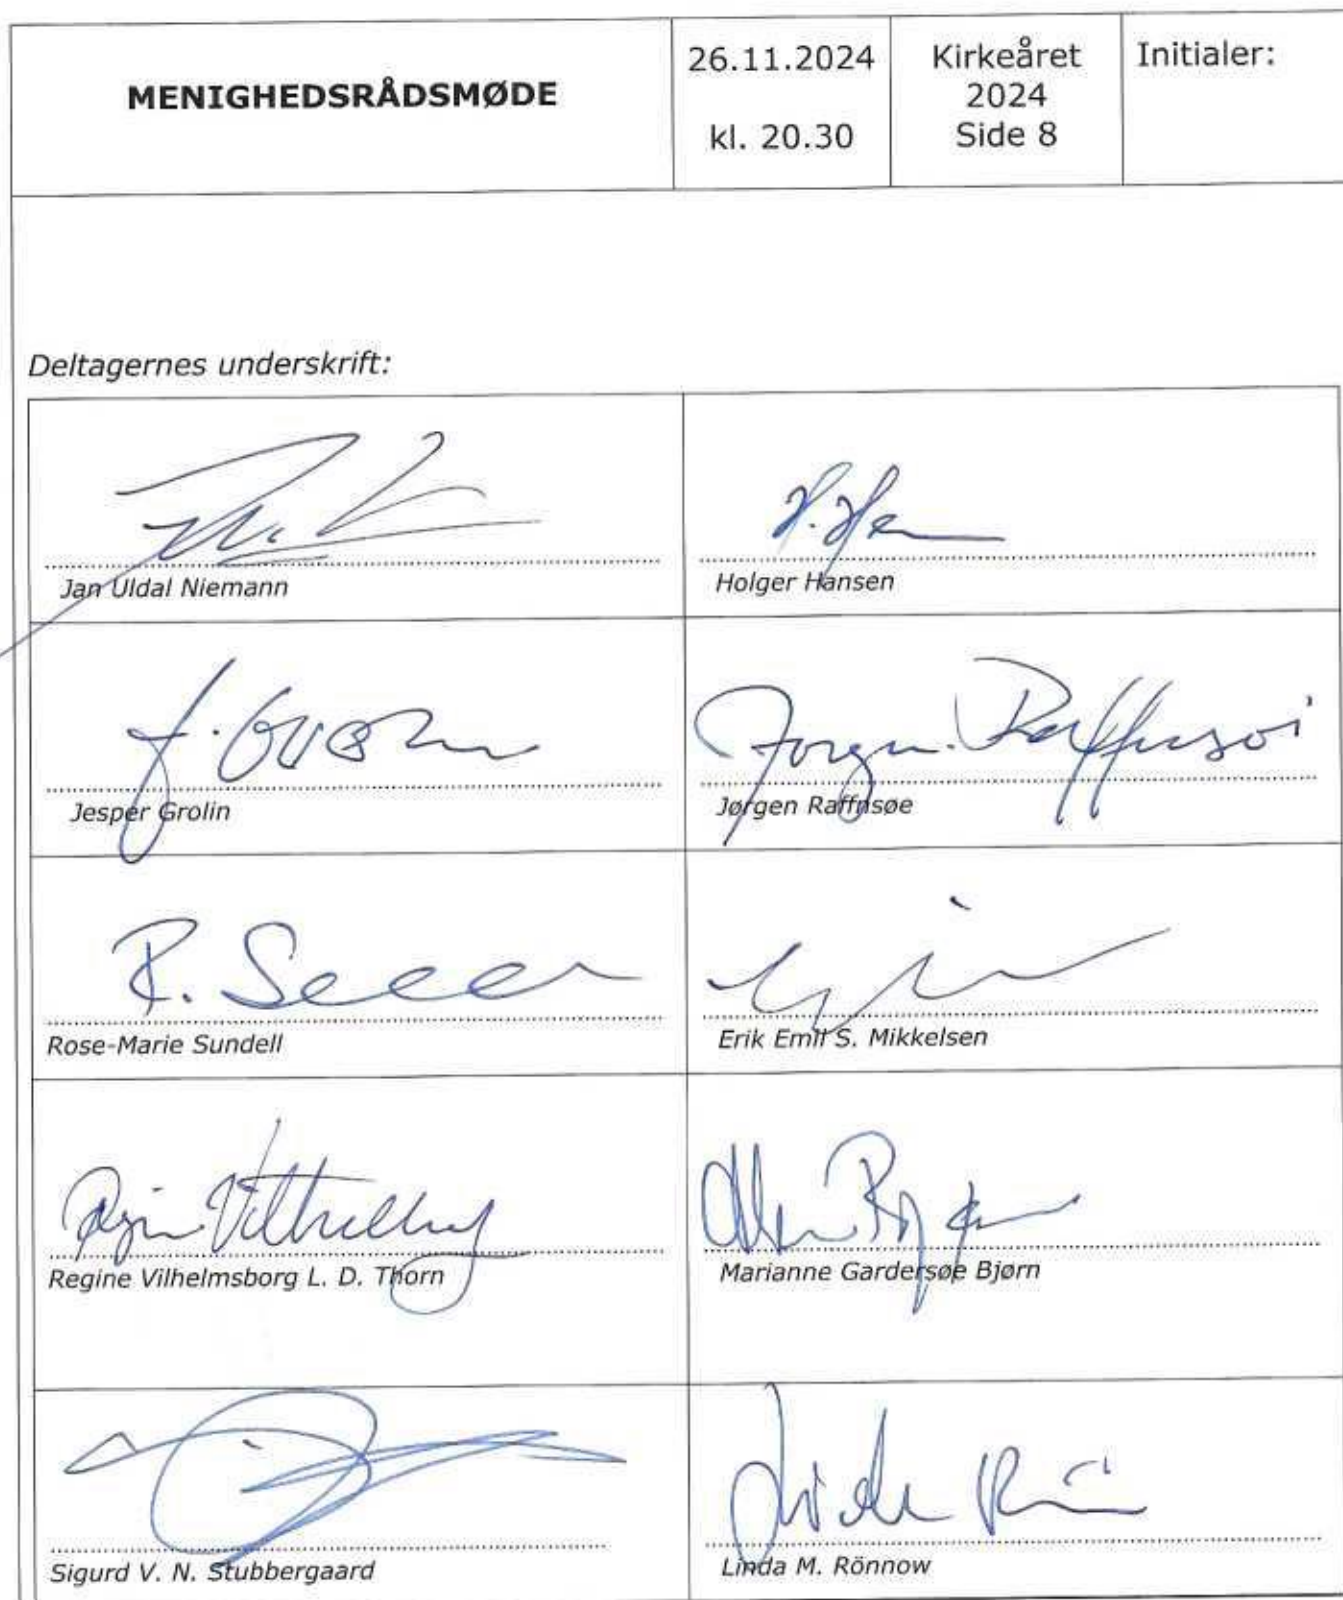 MENIGHEDSRÅDSMØDE
26.11.2024
kl. 20.30
Kirkeåret
2024
Side 8
Initialer:
Deltagernes underskrift:
Jan Uldal Niemann
H. Ha
Holger Hansen
J. Grolin
Jesper Grolin
Jørgen Raffnsøe
Jørgen Raffnsøe
R. Sundell
Rose-Marie Sundell
Erik Emil S. Mikkelsen
Regine Vilhelmsborg L. D. Thorn
Marianne Gardersøe Bjørn
Sigurd V. N. Stubbergaard
Linda M. Rönnow